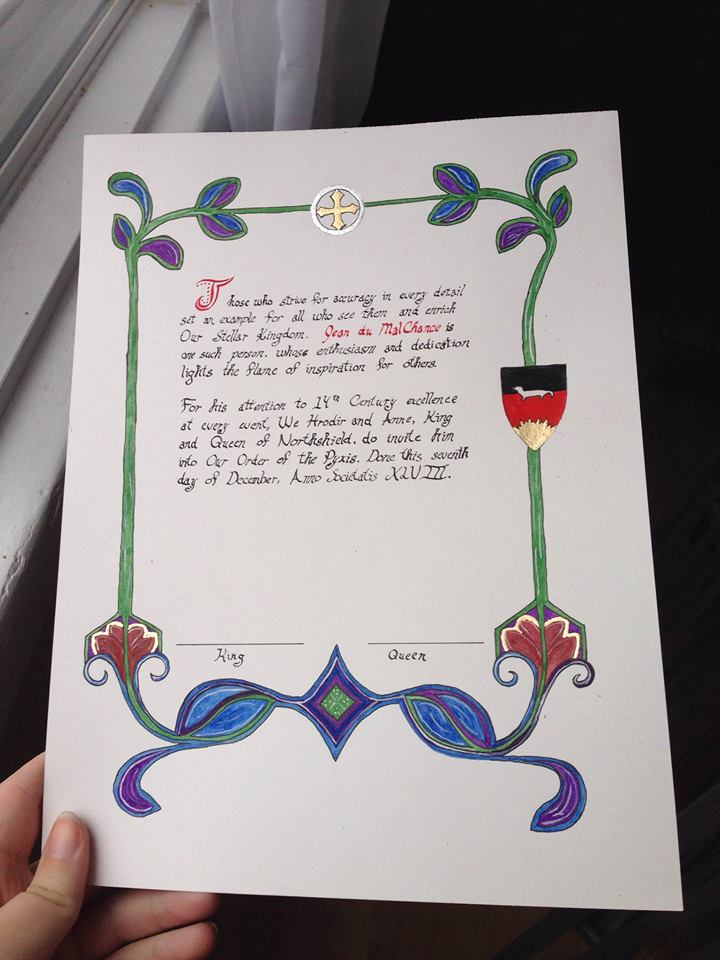 Those who strive for accuracy in every detail
set an example for all who see them and enrich
Our Stellar Kingdom. Jean du MalChance is
one such person, whose enthusiasm and dedication
lights the flame of inspiration for others.
For his attention to 14th Century excellence
at every event, We Hrodir and Anne, King
and Queen of Northshield, do invite him
into Our Order of the Pyxis. Done this seventh
day of December, Anno Societatis XLVIII.
King
Queen